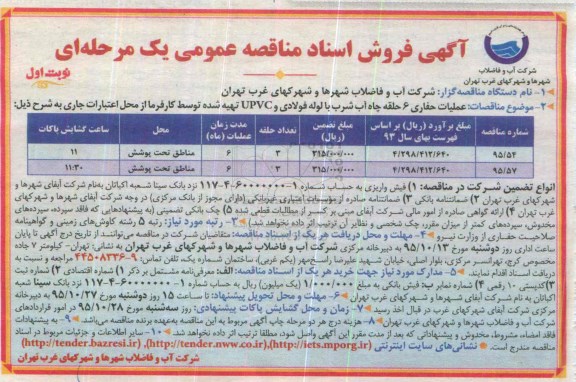 آگهی فروش اسناد مناقصه عمومی یک مرحله‌ای
نوبت اول
شرکت آب و فاضلاب
شهرها و شهرکهای غرب تهران
۱- نام دستگاه مناقصه‌گزار: شرکت آب و فاضلاب شهرها و شهرکهای غرب تهران
۲- موضوع مناقصات: عملیات حفاری ۶ حلقه چاه آب شرب با لوله فولادی و UPVC تهیه شده توسط کارفرما از محل اعتبارات جاری به شرح ذیل:
شماره مناقصه | مبلغ برآورد (ریال) بر اساس فهرست بهای سال ۹۳ | مبلغ تضمین (ریال) | تعداد حلقه | مدت زمان عملیات (ماه) | محل | ساعت گشایش پاکات
۹۵/۵۴ | ۴/۲۹۸/۴۱۲/۶۴۰ | ۳۱۵/۰۰۰/۰۰۰ | ۳ | ۶ | مناطق تحت پوشش | ۱۱
۹۵/۵۷ | ۴/۲۹۸/۴۱۲/۶۴۰ | ۳۱۵/۰۰۰/۰۰۰ | ۳ | ۶ | مناطق تحت پوشش | ۱۱:۳۰
انواع تضمین شرکت در مناقصه: ۱) فیش واریزی به حساب شماره ۱-۶۰۰۰۰۰۰۰-۴-۱۱۷ نزد بانک سینا شعبه اکباتان به‌نام شرکت آبفای شهرها و
شهرکهای غرب تهران ۲) ضمانتنامه بانکی ۳) ضمانتنامه صادره از موسسات اعتباری غیربانکی (دارای مجوز از بانک مرکزی) در وجه شرکت آبفای شهرها و شهرکهای
غرب تهران ۴) ارائه گواهی صادره از امور مالی شرکت آبفای مبنی بر کسر از مطالبات قطعی شده ۵) چک بانکی تضمینی (به پیشنهادهایی که فاقد سپرده، سپرده‌های
مخدوش، سپرده‌های کمتر از میزان مقرر، چک شخصی و نظایر آن ترتیب اثر داده نخواهد شد.) ۳- رتبه مورد نیاز: رتبه ۵ رشته کاوش‌های زمینی و گواهینامه
صلاحیت حفاری از وزارت نیرو ۴- مهلت و محل دریافت هر یک از اسناد مناقصات: متقاضیان شرکت در مناقصه می‌توانند، از تاریخ درج آگهی تا پایان
ساعت اداری روز دوشنبه مورخ ۹۵/۱۰/۱۳ به دبیرخانه مرکزی شرکت آب و فاضلاب شهرها و شهرکهای غرب تهران به نشانی: تهران- کیلومتر ۷ جاده
مخصوص کرج، تهرانسر مرکزی، بلوار اصلی، خیابان شهید علیرضا راسخ‌چهر (یکم غربی)، ساختمان شماره یک، تلفن تماس: ۹-۴۴۵۰۸۳۳۶ مراجعه و نسبت به
دریافت اسناد اقدام نمایند. ۵- مدارک مورد نیاز جهت خرید هر یک از اسناد مناقصه: الف: معرفی‌نامه مشتمل بر ذکر ۱) شماره اقتصادی ۲) شماره ثبت
۳) کدپستی ۱۰ رقمی ۴) شماره نمابر ب: فیش بانکی به مبلغ ۱/۰۰۰/۰۰۰ (یک میلیون) ریال به حساب شماره ۱-۶۰۰۰۰۰۰۰-۴-۱۱۷ نزد بانک سینا شعبه
اکباتان به نام شرکت آبفای شهرها و شهرکهای غرب تهران ۶- مهلت و محل تحویل پیشنهاد: تا ساعت ۱۵ روز دوشنبه مورخ ۹۵/۱۰/۲۷ به دبیرخانه
مرکزی شرکت آبفای شهرها و شهرکهای غرب تهران در قبال اخذ رسید ۷- زمان و محل گشایش پاکات پیشنهادی: روز سه‌شنبه مورخ ۹۵/۱۰/۲۸ در امور قراردادهای
شرکت آب و فاضلاب شهرها و شهرکهای غرب تهران ۸- هزینه درج هر دو مرحله چاپ آگهی مربوط به این مناقصه به‌عهده برنده مناقصه می‌باشد. ۹- به پیشنهادات
فاقد امضاء، مشروط، مخدوش و پیشنهاداتی که بعد از مدت مقرر این آگهی واصل شود، مطلقا ترتیب اثر داده نخواهد شد. ۱۰- سایر اطلاعات و جزئیات مربوط در اسناد
مناقصه مندرج است. نشانی‌های سایت اینترنتی (http://iets.mporg.ir)، (http://tender.nww.co.ir)، (http://tender.bazresi.ir)
شرکت آب و فاضلاب شهرها و شهرکهای غرب تهران